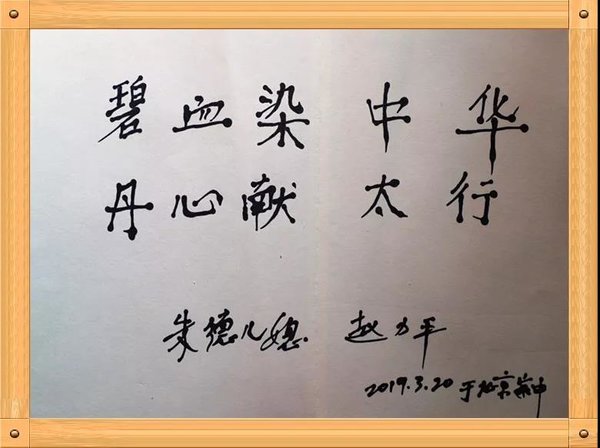 碧血染中华
丹心献太行
朱德儿媳 赵力平
2019.3.20 于北京